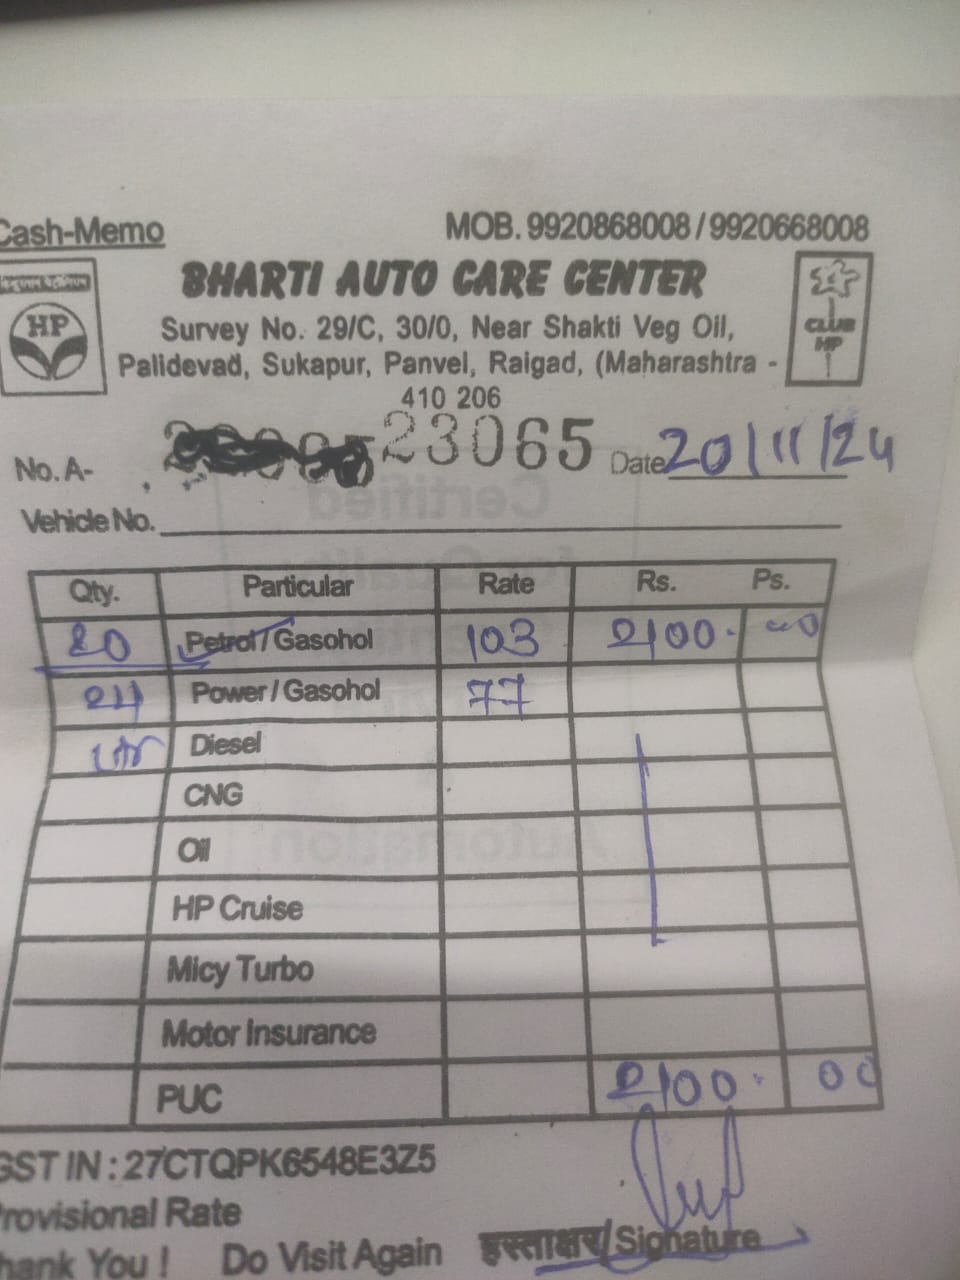 Cash-Memo MOB. 9920868008 / 9920668008
हिन्दुस्तान पेट्रोलियम
HP
BHARTI AUTO CARE CENTER
CLUB
HP
Survey No. 29/C, 30/0, Near Shakti Veg Oil,
Palidevad, Sukapur, Panvel, Raigad, (Maharashtra -
410 206
No. A- 23065 Date 20/11/24
Vehicle No.
Qty. Particular Rate Rs. Ps.
20 Petrol / Gasohol 103 2100. 00
24 Power / Gasohol 77
Diesel
CNG
Oil
HP Cruise
Micy Turbo
Motor Insurance
PUC 2100. 00
GST IN : 27CTQPK6548E3Z5
Provisional Rate
Thank You ! Do Visit Again हस्ताक्षर/Signature